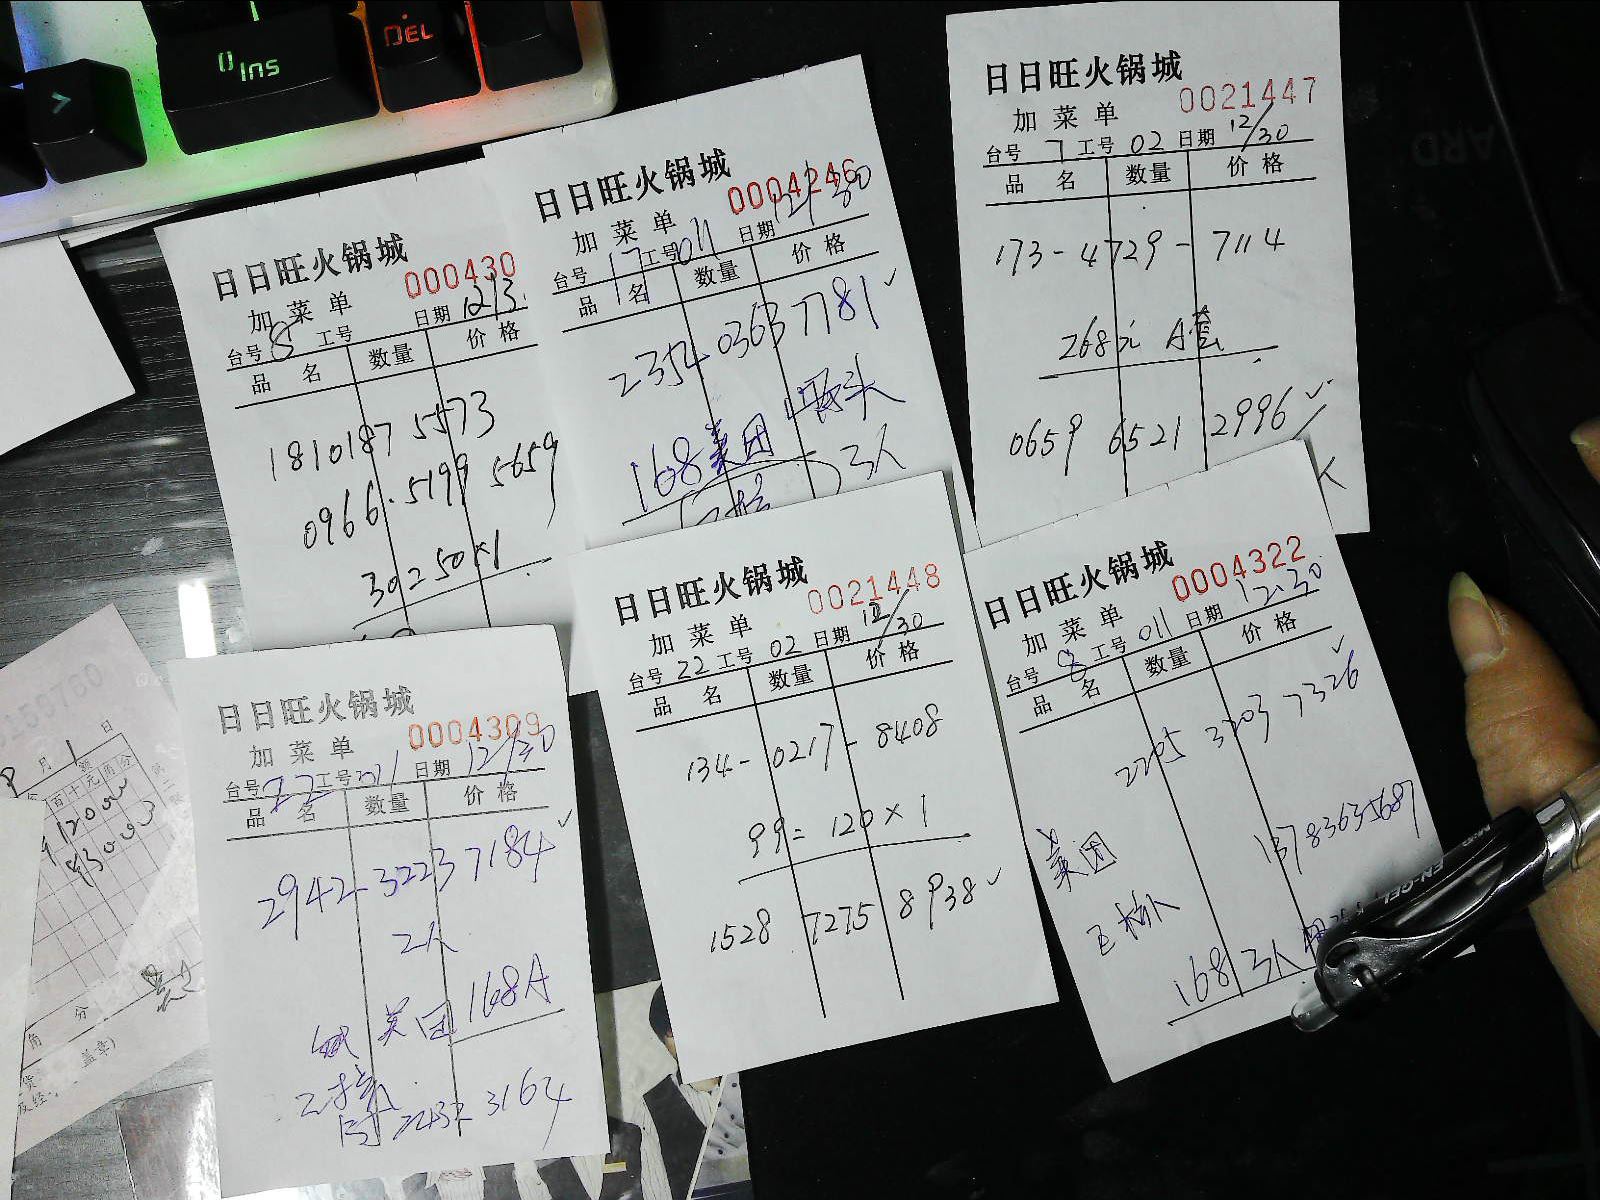 Ins
DEL
日日旺火锅城
000430
加菜单
台号 8 工号 日期
品名 数量 价格
1810187 5573
0966.5199 5659
302 50×1
日日旺火锅城
0004246
加菜单
台号 17 工号 011 日期 12/30
品名 数量 价格
2354 0363 7781 ✓
168美团
3人
日日旺火锅城
0021447
加菜单
台号 7 工号 02 日期 12/30
品名 数量 价格
173-4729-7114
268元 A套
0659 6521 2996 ✓
日日旺火锅城
0004309
加菜单
台号 22 工号 011 日期 12/30
品名 数量 价格
2942 3223 7184 ✓
2人
美团 168A
3164
日日旺火锅城
0021448
加菜单
台号 22 工号 02 日期 12/30
品名 数量 价格
134-0217-8408
99=120×1
1528 7275 8938 ✓
日日旺火锅城
0004322
加菜单
台号 8 工号 011 日期 12.30
品名 数量 价格
2295 3203 7326 ✓
13783635687
美团
168 3人
月 日
百十元角分
角 分
盖章)